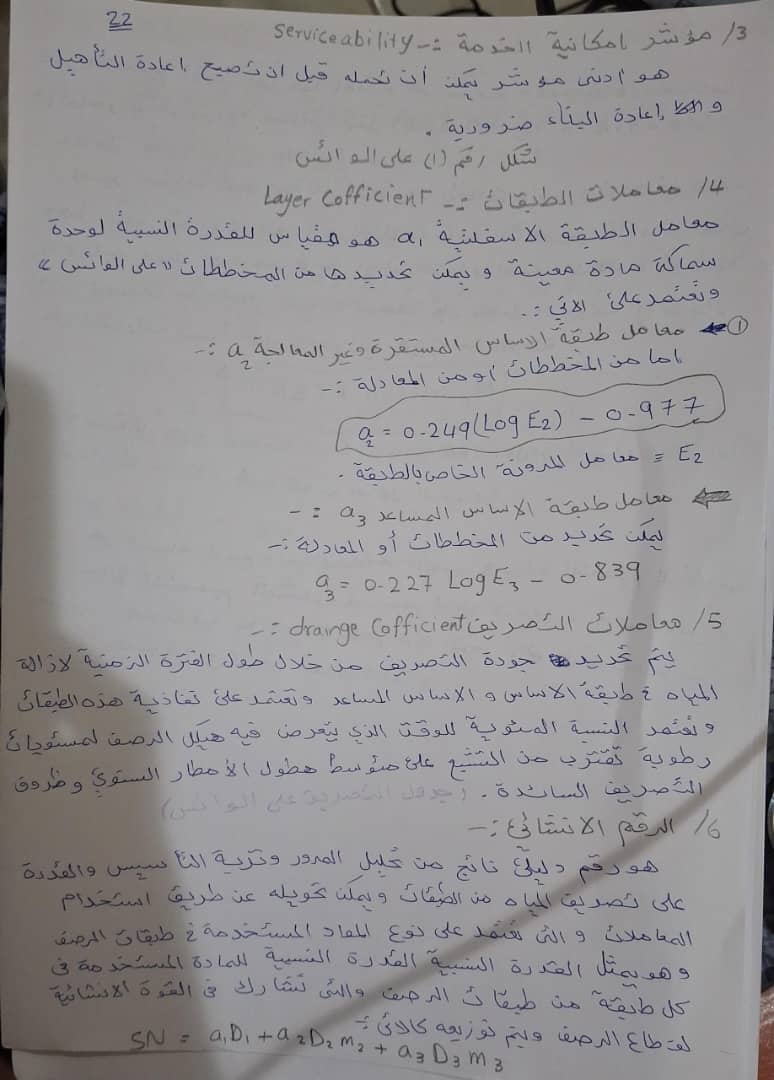 22
3/ مؤشر امكانية الخدمة :- Serviceability
هو ادنى مؤشر يمكن أن تحمله قبل ان تصبح اعادة التأهيل
و اعادة البناء ضرورية .
شكل رقم (1) على الواتس
4/ معاملات الطبقات :- Layer Cofficient
معامل الطبقة الاسفلتية a1 هو مقياس للقدرة النسبية لوحدة
سماكة مادة معينة و يمكن تحديدها من المخططات " على الواتس "
وتعتمد على الاتي :.
① معامل طبقة الاساس المستقرة وغير المعالجة a2 :-
اما من المخططات او من المعادلة :-
a2 = 0.249(Log E2) - 0.977
E2 = معامل المرونة الخاص بالطبقة .
معامل طبقة الاساس المساعد a3 :-
يمكن تحديد من المخططات أو المعادلة :-
a3 = 0.227 Log E3 - 0.839
5/ معاملات التصريف drainge Cofficient :-
يتم تحديد جودة التصريف من خلال طول الفترة الزمنية لازالة
المياه في طبقة الاساس و الاساس المساعد وتعتمد على نفاذية هذه الطبقات
وتعتمد النسبة المئوية للوقت الذي يتعرض فيه هيكل الرصف لمستويات
رطوبة تقترب من التشبع على متوسط هطول الأمطار السنوي وظروف
التصريف السائدة . (جدول التصريف على الواتس)
6/ الرقم الانشائي :-
هو رقم دليلي ناتج من تحليل المرور وتربة التأسيس والقدرة
على تصريف المياه من الطبقات ويمكن تحويله عن طريق استخدام
المعاملات والتى تعتمد على نوع المواد المستخدمة في طبقات الرصف
وهو يمثل القدرة النسبية القدرة النسبية للمادة المستخدمة في
كل طبقة من طبقات الرصف والتى تشارك فى القوة الانشائية
لقطاع الرصف ويتم توزيعه كالاتي :-
SN = a1D1 + a2D2m2 + a3D3m3